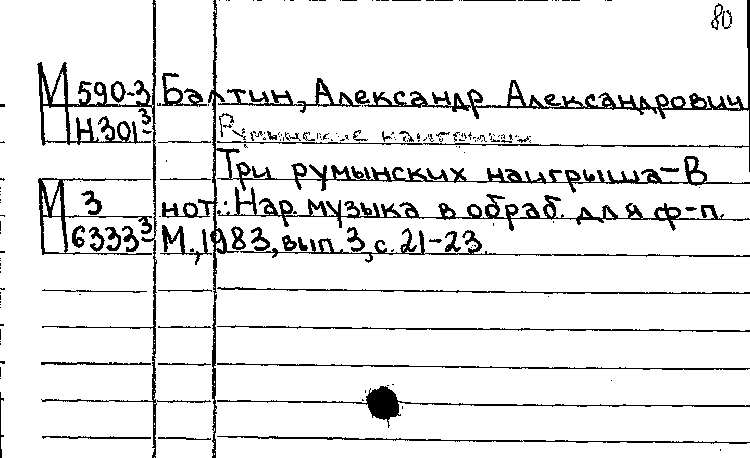 80
М 590-3 Балтин, Александр Александрович
Н301³ Румынские наигрыши
Три румынских наигрыша - В
М 3 нот.: Нар. музыка в обраб. для ф-п.
6333³ М., 1983, вып. 3, с. 21-23.